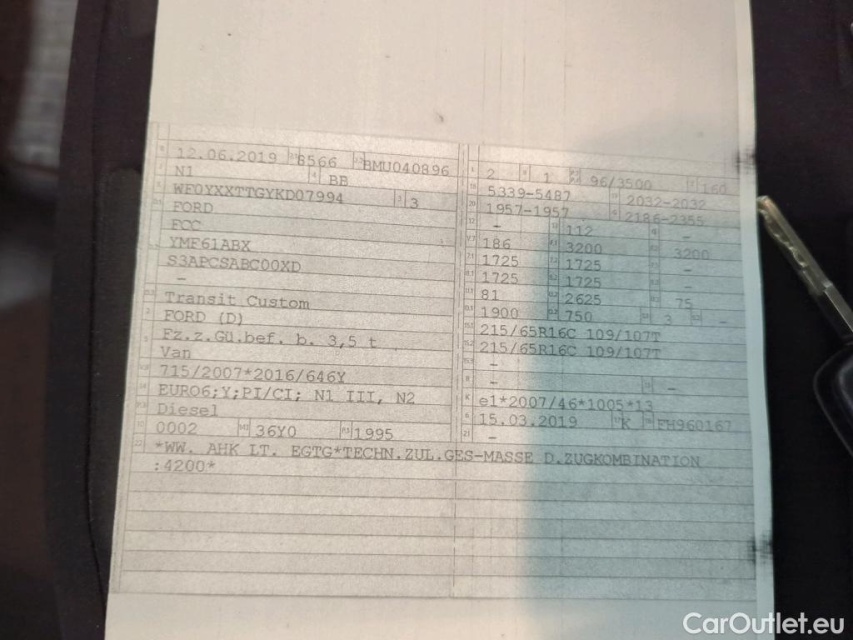 12.06.2019 8566 BMU040896
N1 BB
WF0YXXTTGYKD07994 3
FORD
FCC
YMF61ABX
S3APCSABC00XD
–
Transit Custom
FORD (D)
Fz.z.Gü.bef. b. 3,5 t
Van
715/2007*2016/646Y
EURO6;Y;PI/CI; N1 III, N2
Diesel
0002 36Y0 1995
2 1 96/3500 160
5339-5487 2032-2032
1957-1957 2186-2355
– 112
186 3200 3200
1725 1725 –
1725 1725 –
81 2625 75
1900 750 3 –
215/65R16C 109/107T
215/65R16C 109/107T
–
– –
e1*2007/46*1005*13
15.03.2019 K FH960167
–
*WW. AHK LT. EGTG*TECHN.ZUL.GES-MASSE D.ZUGKOMBINATION
:4200*
CarOutlet.eu